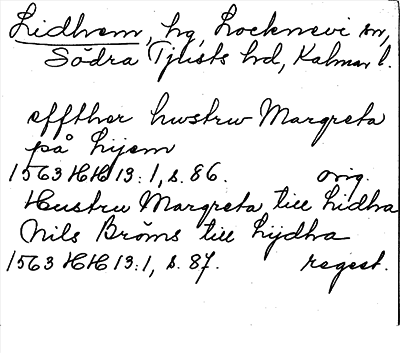 Lidhem, hg, Locknevi sn,
Södra Tjusts hd, Kalmar l.
effther hustrw Margreta
på Lijem
1563 HH 13:1, s. 86. orig.
Hustru Margreta till Lidha
Nils Bröms till Lijdha
1563 HH 13:1, s. 87. regest.